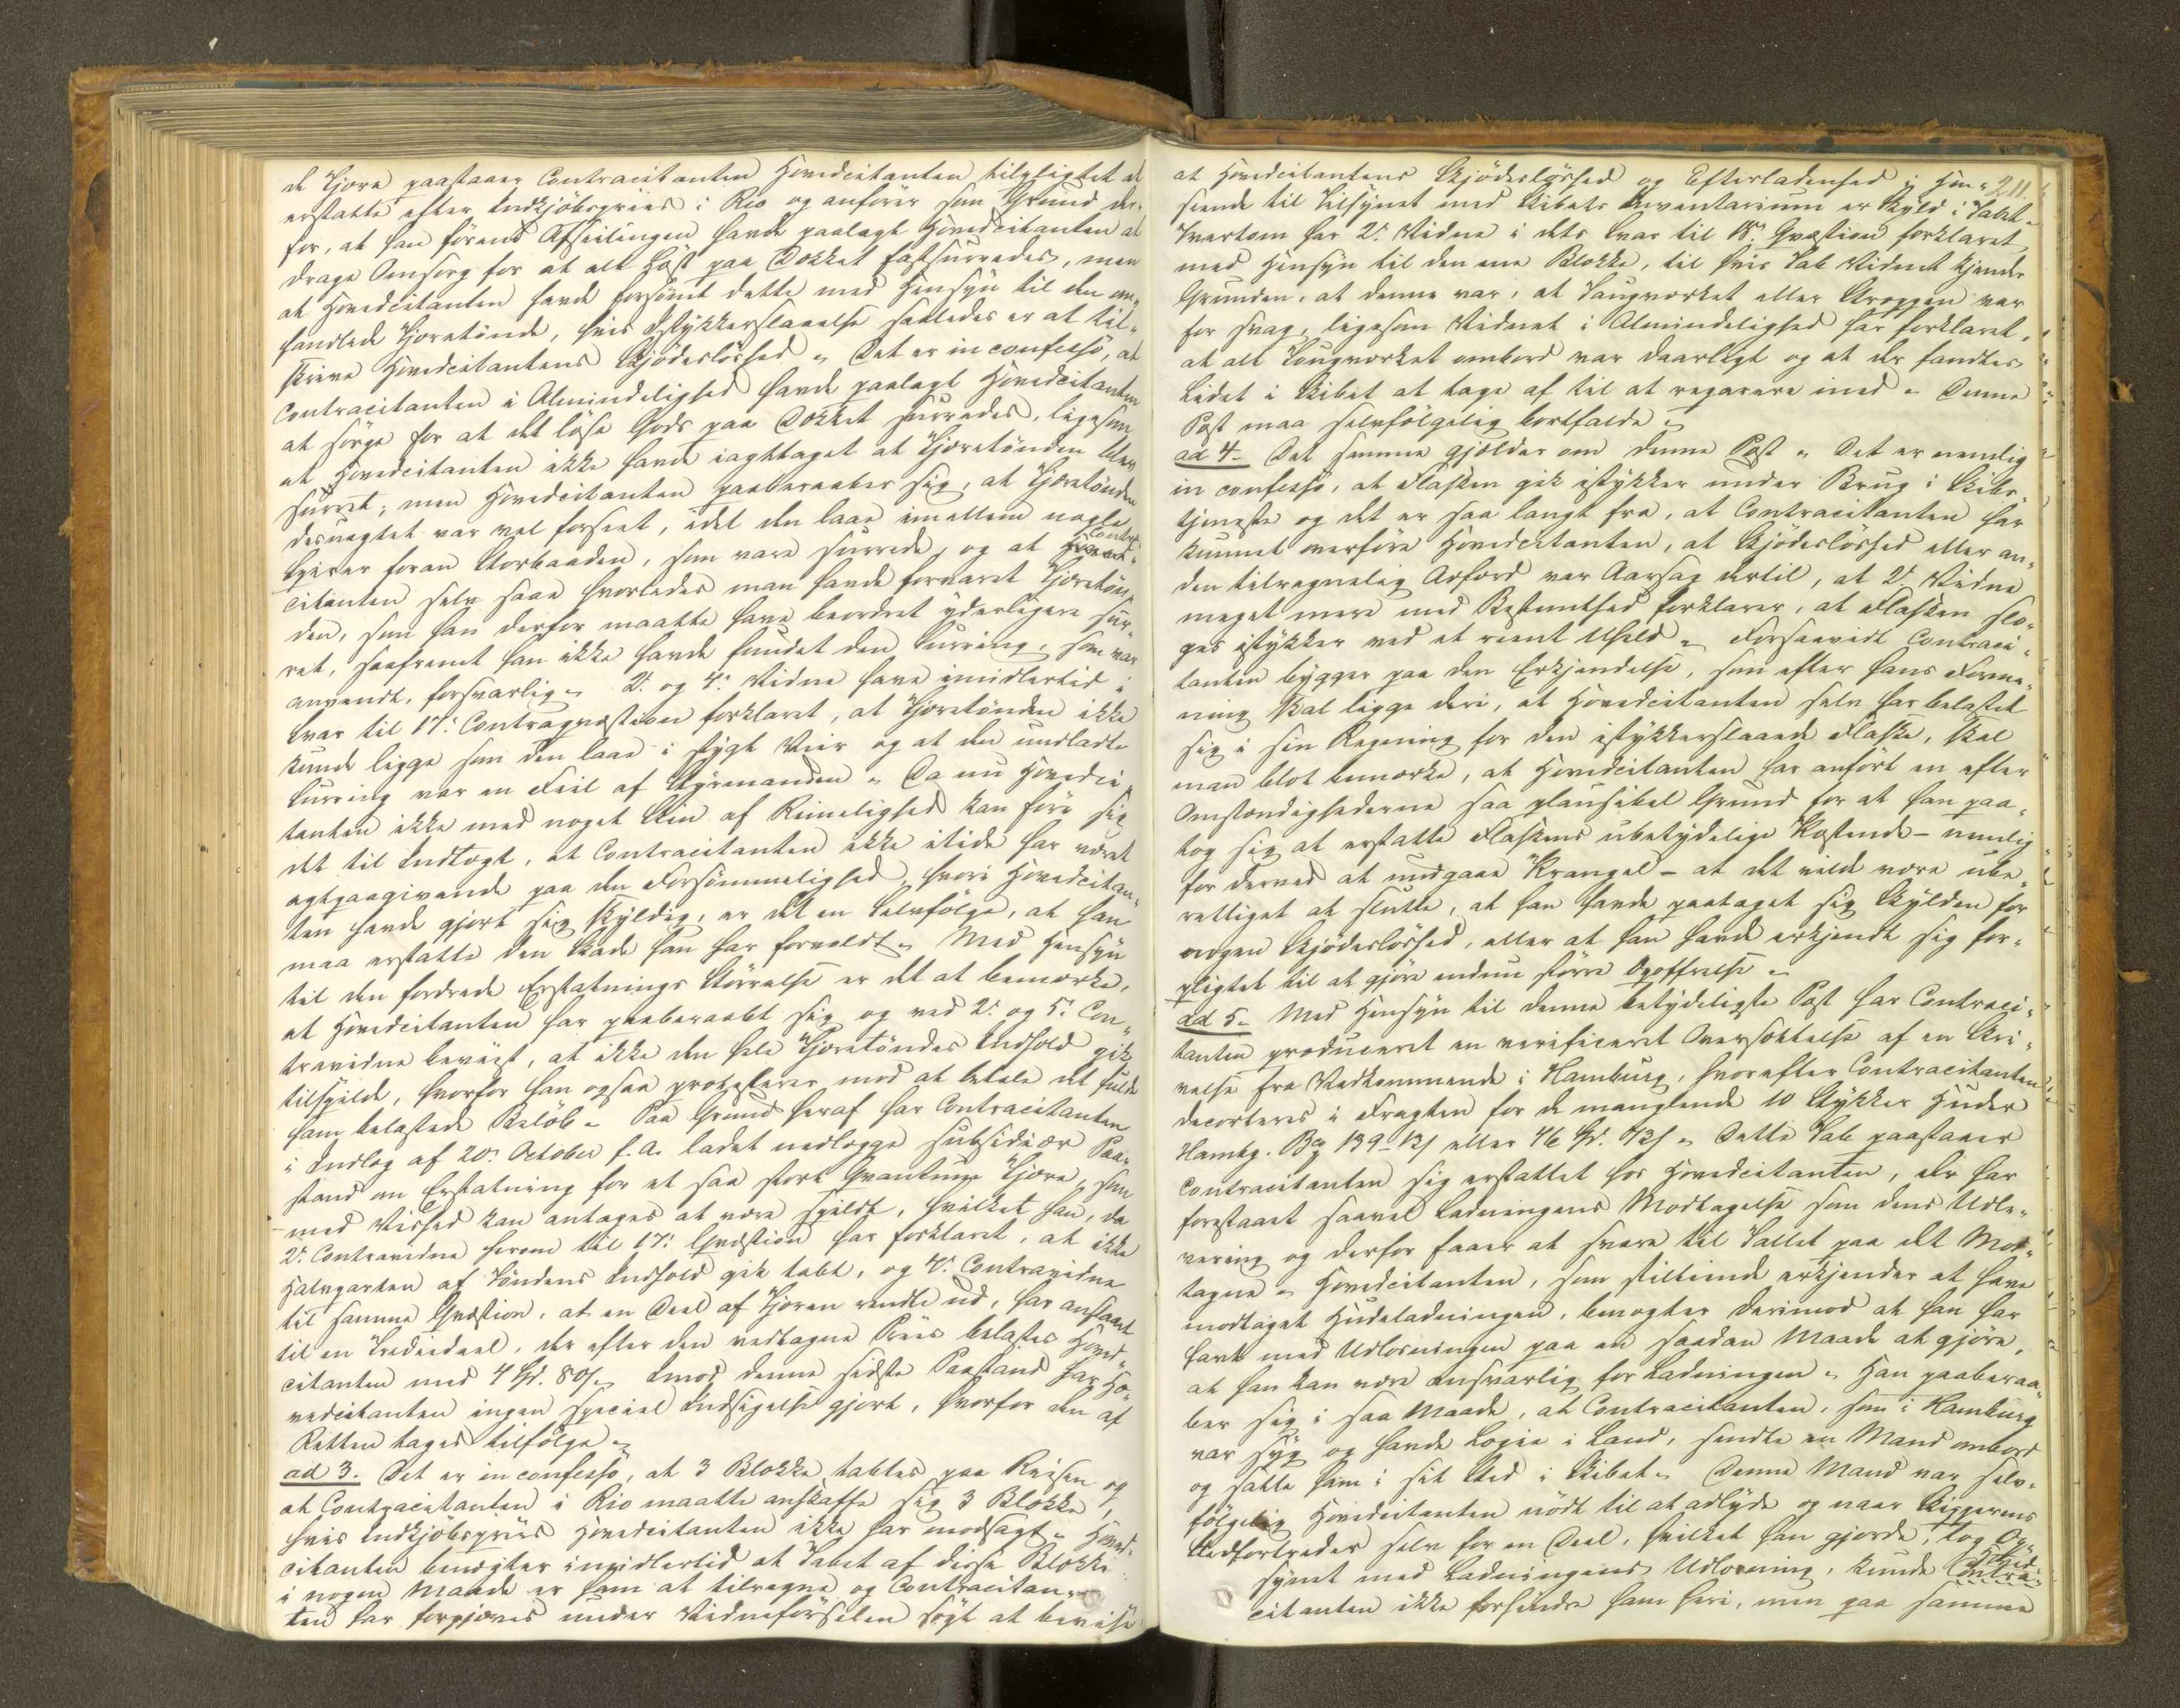 de Tjære paastaaer Contracitanten Hovedcitanten tilpligtet at
erstatte efter Indkjöbspriis i Rio og anförer som Grund der-
for, at han förend Afseilingen havde paalagt Hovedcitanten at
drage Omsorg for at alt Löst paa Dækket fastsurredes, men
at Hovedcitanten havde forsömt dette med Hensyn til den om-
handlede Tjæretönde, hvis Istykkerslaaelse saaledes er at til-
skrive Hovedcitantens Skjödeslöshed. Det er in confesso, at
Contracitanten i Almindelighed havde paalagt Hovedcitanten
at sörge for at det löse Gods paa Dækket surredes, ligesom
at Hovedcitanten ikke havde iagttaget at Tjæretönden blev
surret; men Hovedcitanten paaberaaber sig, at Tjæretönden
desuagtet var vel forseet, idet den laae imellem nogle
Spirer foran Storbaaden, som vare surrede, og at Contra-
citanten selv saae hvorledes man havde forvaret Tjæretön-
den, som han derfor maatte have beordret yderligere sur-
ret, saafremt han ikke havde fundet den Surring, som var
anvendt, forsvarlig. 2t og 4t Vidne have imidlertid i
Svar til 17t Contraqvæstion forklaret, at Tjæretönden ikke
kunde ligge som den laae i stygt Veir og at den undladte
Surring var en Feil af Styrmanden. Da nu Hovedci-
tanten ikke med noget Skin af Rimelighed kan före sig
det til Indtægt, at Contracitanten ikke itide har været
agtpaagivende paa den Forsömmelighed, hvori Hovedcitan-
ten havde gjort sig skyldig, er det en Selvfölge, at han
maa erstatte den Skade han har forvoldt. Med Hensyn
til den fordrede Erstatnings Störrelse er det at bemærke,
at Hovedcitanten har paaberaabt sig og ved 2t og 5t Con-
travidne beviist, at ikke den hele Tjæretöndes Indhold gik
tilspilde, hvorfor han ogsaa protesterer mod at betale det fulde
ham belastede Belöb. Paa Grund heraf har Contracitanten
i Indlæg af 20de October f. A. ladet nedlægge subsidiær Paa-
stand om Erstatning for et saa stort Qvantum Tjære, som
med Vished kan antages at være spildt, hvilket han, da
2t Contravidne herom til 17t Qvæstion har forklaret, at ikke
Halvparten af Töndens Indhold gik tabt, og 4t Contravidne
til samme Qvæstion, at en Deel af Tjæren rendte ud, har anslaaet
til en Trediedeel, der efter den vedtagne Priis belaster Hoved-
citanten med 4 Spd. 80 s. Imod denne sidste Paastand har Ho-
vedcitanten ingen special Indsigelse gjort, hvorfor den af
Retten tages tilfölge.
ad 3. Det er in confesso, at 3 Blokke tabtes paa Reisen og
at Contracitanten i Rio maatte anskaffe sig 3 Blokke,
hvis Indkjöbspriis Hovedcitanten ikke har modsagt. Hoved-
citanten benægter imidlertid at Tabet af disse Blokke
i nogen Maade er ham at tilregne og Contracitan-
ten har forgjæves under Vidneförselen sögt at bevise
211
at Hovedcitantens Skjödeslöshed og Efterladenhed i Hen-
seende til Tilsynet med Skibets Inventarium er Skyld i Tabet.
Tvertom har 2t Vidne i dets Svar til 18de Qvæstion forklaret
med Hensyn til den ene Blokke, til hvis Tab Vidnet kjender
Grunden, at denne var, at Taugværket eller Stroppen var
for svag, ligesom Vidnet i Almindelighed har forklaret,
at alt Taugværket ombord var daarligt og at der fandtes
Lidet i Skibet at tage af til at reparere med. Denne
Post maa selvfölgelig bortfalde.
ad 4. Det samme gjælder om denne Post. Det er nemlig
in confesso, at Flasken gik istykker under Brug i Skibs-
tjeneste og det er saa langt fra, at Contracitanten har
kunnet overföre Hovedcitanten, at Skjödeslöshed eller an-
den tilregnelig Adfærd var Aarsag dertil, at 2t Vidne
meget mere med Bestemthed forklarer, at Flasken slo-
ges istykker ved et reent Uheld. Forsaavidt Contraci-
tanten bygger paa den Erkjendelse, som efter hans Forme-
ning skal ligge deri, at Hovedcitanten selv har belastet
sig i sin Regning for den istykkerslaaede Flaske, skal
man blot bemærke, at Hovedcitanten har anfört en efter
Omstændighederne saa plausibel Grund for at han paa-
tog sig at erstatte Flaskens ubetydelige Kostende – nemlig
for derved at undgaae Krangel – at det vilde være ube-
rettiget at slutte, at han havde paataget sig Skylden for
nogen Skjödeslöshed, eller at han havde erkjendt sig for-
pligtet til at gjöre endnu större Opoffrelse.
ad 5. Med Hensyn til denne betydeligste Post har Contraci-
tanten produceret en verificeret Oversættelse af en Skri-
velse fra Vedkommende i Hamburg, hvorefter Contracitanten
decorteres i Fragten for de manglende 10 Stykker Huder
Hambg. Bco 139 – 12 s eller 46 Spd. 72 s. Dette Tab paastaaer
Contracitanten sig erstattet hos Hovedcitanten, der har
forestaaet saavel Ladningens Modtagelse som dens Udle-
vering og derfor faaer at svare til Tallet paa det Mod-
tagne. Hovedcitanten, som stiltiende erkjender at have
modtaget Hudeladningen, benægter derimod at han har
havt med Udlosningen paa en saadan Maade at gjöre,
at han kan være ansvarlig for Ladningen. Han paaberaa-
ber sig i saa Maade, at Contracitanten, som i Hamburg
var syg og havde Logie i Land, sendte en Mand ombord
og satte ham i sit Sted i Skibet. Denne Mand var selv-
fölgelig Hovedcitanten nödt til at adlyde og naar Skipperens
Stedfortræder selv for en Deel, hvilket han gjorde, tog Op-
synet med Ladningens Udlosning, kunde Hoved-
citanten ikke forhindre ham heri, men paa samme